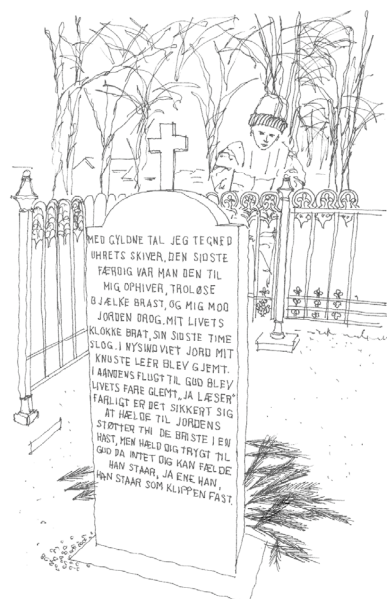 MED GYLDNE TAL JEG TEGNED
UHRETS SKIVER, DEN SIDSTE
FÆRDIG VAR MAN DEN TIL
MIG OPHIVER, TROLØSE
BJÆLKE BRAST, OG MIG MOD
JORDEN DROG. MIT LIVETS
KLOKKE BRAT, SIN SIDSTE TIME
SLOG. I NYSINDVIET JORD MIT
KNUSTE LEER BLEV GJEMT.
I AANDENS FLUGT TIL GUD BLEV
LIVETS FARE GLEMT. "JA LÆSER"
FARLIGT ER DET SIKKERT SIG
AT HÆLDE TIL JORDENS
STØTTER THI DE BRISTE I EN
HAST, MEN HÆLD DIG TRYGT TIL
GUD DA INTET DIG KAN FÆLDE
HAN STAAR, JA ENE HAN,
HAN STAAR SOM KLIPPEN FAST.